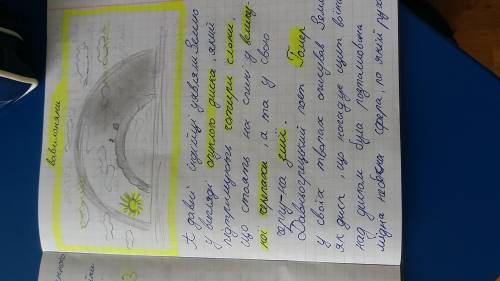 вавилоняни
А давні індійці уявляли Землю
у вигляді опуклого диска, який
підтримують чотири слони,
що стоять на спині у
черепахи, а та у свою
чергу - на змії.
Давньогрецький поет Гомер
у своїх творах описував
як диск, що нагадує щит воїна
над диском була розташована
мідна небесна сфера, по якій